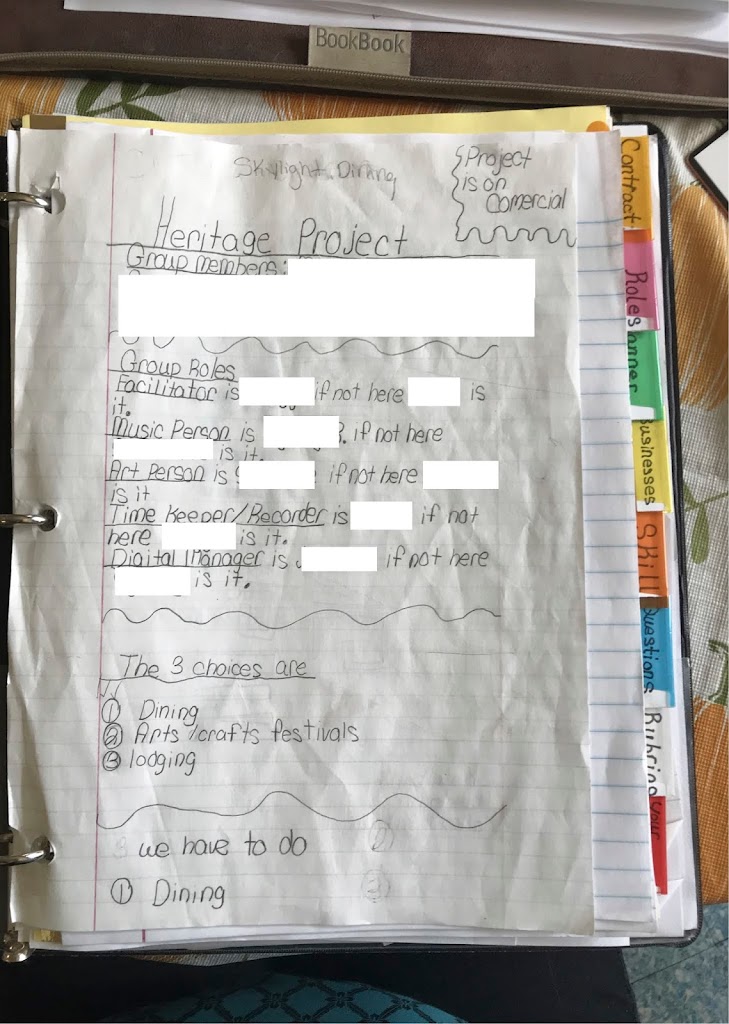 BookBook
Skylight Dining
Project
is on
Comercial
Heritage Project
Group members:
Group Roles
Facilitator is if not here is
it.
Music Person is . if not here
is it.
Art Person is if not here
is it
Time Keeper/Recorder is if not
here is it.
Digital Manager is if not here
is it.
The 3 choices are
① Dining
② Arts /crafts festivals
③ lodging
3 we have to do ②
① Dining ③
Contract
Roles
anner
Businesses
Skill
Questions
Rubric
your